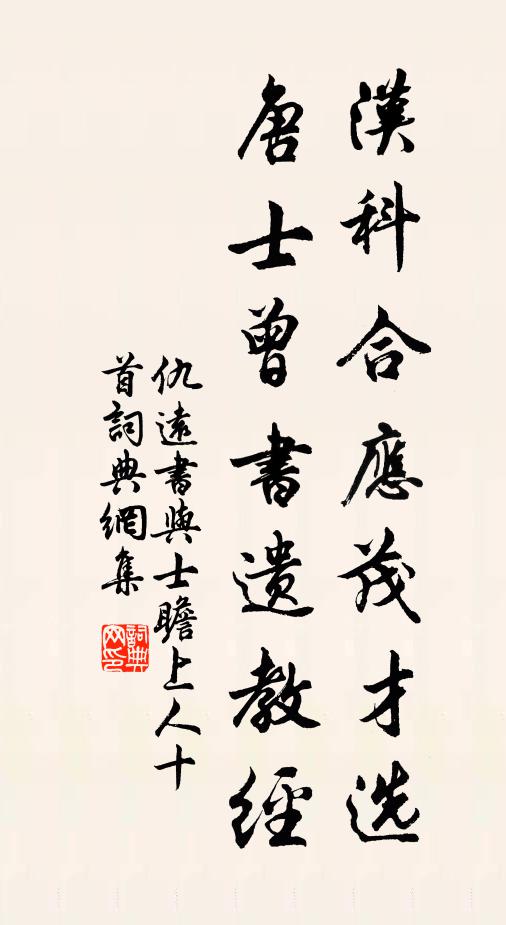 漢科合應茂才选
唐士曾書遺教經
仇遠書與士瞻上人十
首詞典網集
詞典网印